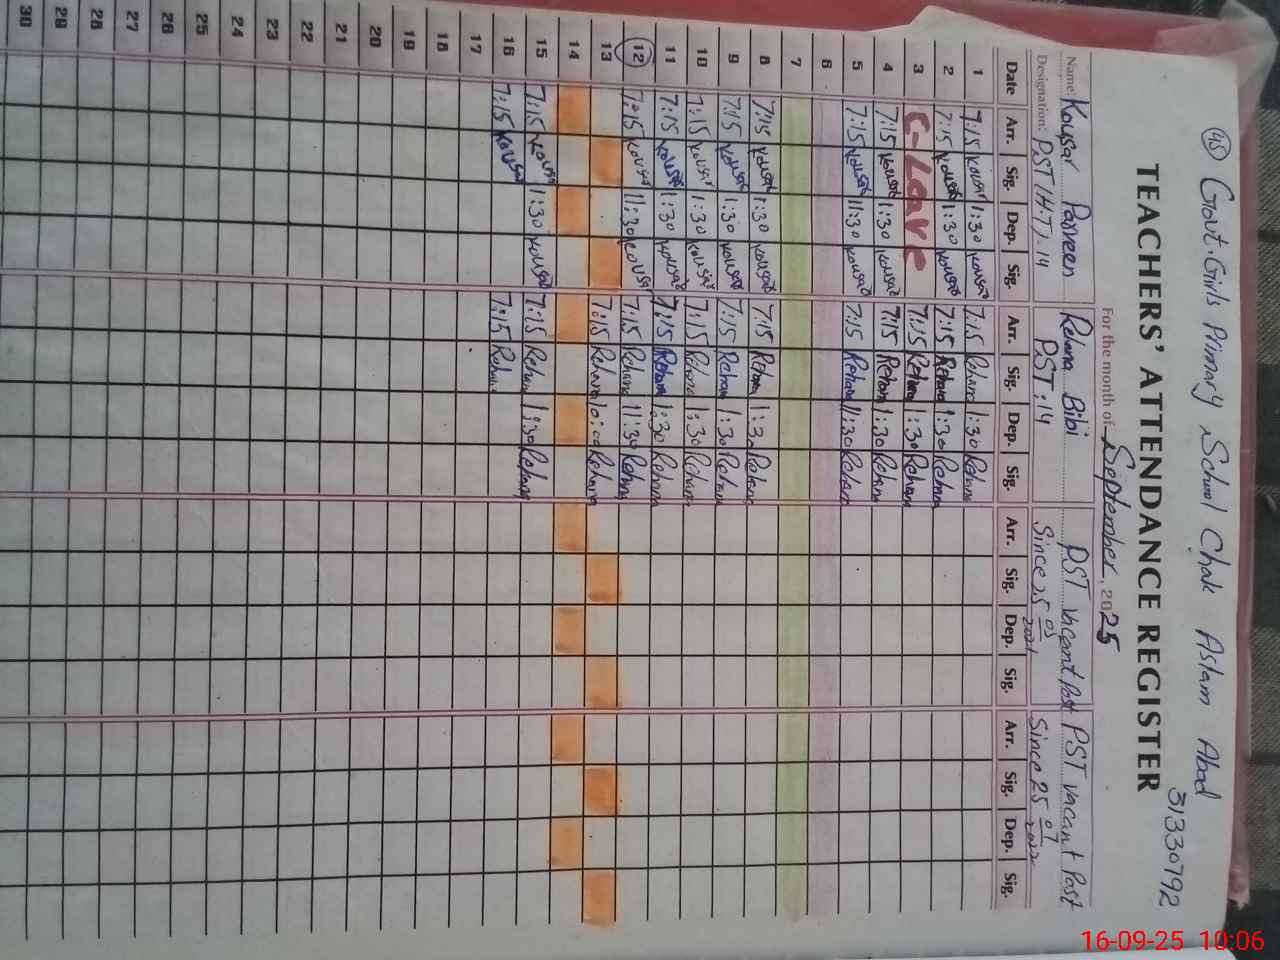 45 Govt. Girls Primary School Chak Aslam Abad
31330792
TEACHERS' ATTENDANCE REGISTER
For the month of September, 2025
Name: Kousar Parveen Rehana Bibi PST Vacant Post PST Vacant Post
Designation: PST (H.T).14 PST:14 Since 25 05 2021 Since 25 07 2022
Date Arr. Sig. Dep. Sig. Arr. Sig. Dep. Sig. Arr. Sig. Dep. Sig. Arr. Sig. Dep. Sig.
1 7:15 Kousar 1:30 Kousar 7:15 Rehana 1:30 Rehana
2 7:15 Kousar 1:30 Kousar 7:15 Rehana 1:30 Rehana
3 C-Leave 7:15 Rehana 1:30 Rehana
4 7:15 Kousar 1:30 Kousar 7:15 Rehana 1:30 Rehana
5 7:15 Kousar 11:30 Kousar 7:15 Rehana 11:30 Rehana
6
7
8 7:15 Kousar 1:30 Kousar 7:15 Rehana 1:30 Rehana
9 7:15 Kousar 1:30 Kousar 7:15 Rehana 1:30 Rehana
10 7:15 Kousar 1:30 Kousar 7:15 Rehana 1:30 Rehana
11 7:15 Kousar 1:30 Kousar 7:15 Rehana 1:30 Rehana
12 7:15 Kousar 11:30 Kousar 7:15 Rehana 11:30 Rehana
13 7:15 Rehana 10:00 Rehana
14
15 7:15 Kousar 1:30 Kousar 7:15 Rehana 1:30 Rehana
16 7:15 Kousar 7:15 Rehana
17
18
19
20
21
22
23
24
25
26
27
28
29
30
16-09-25 10:06